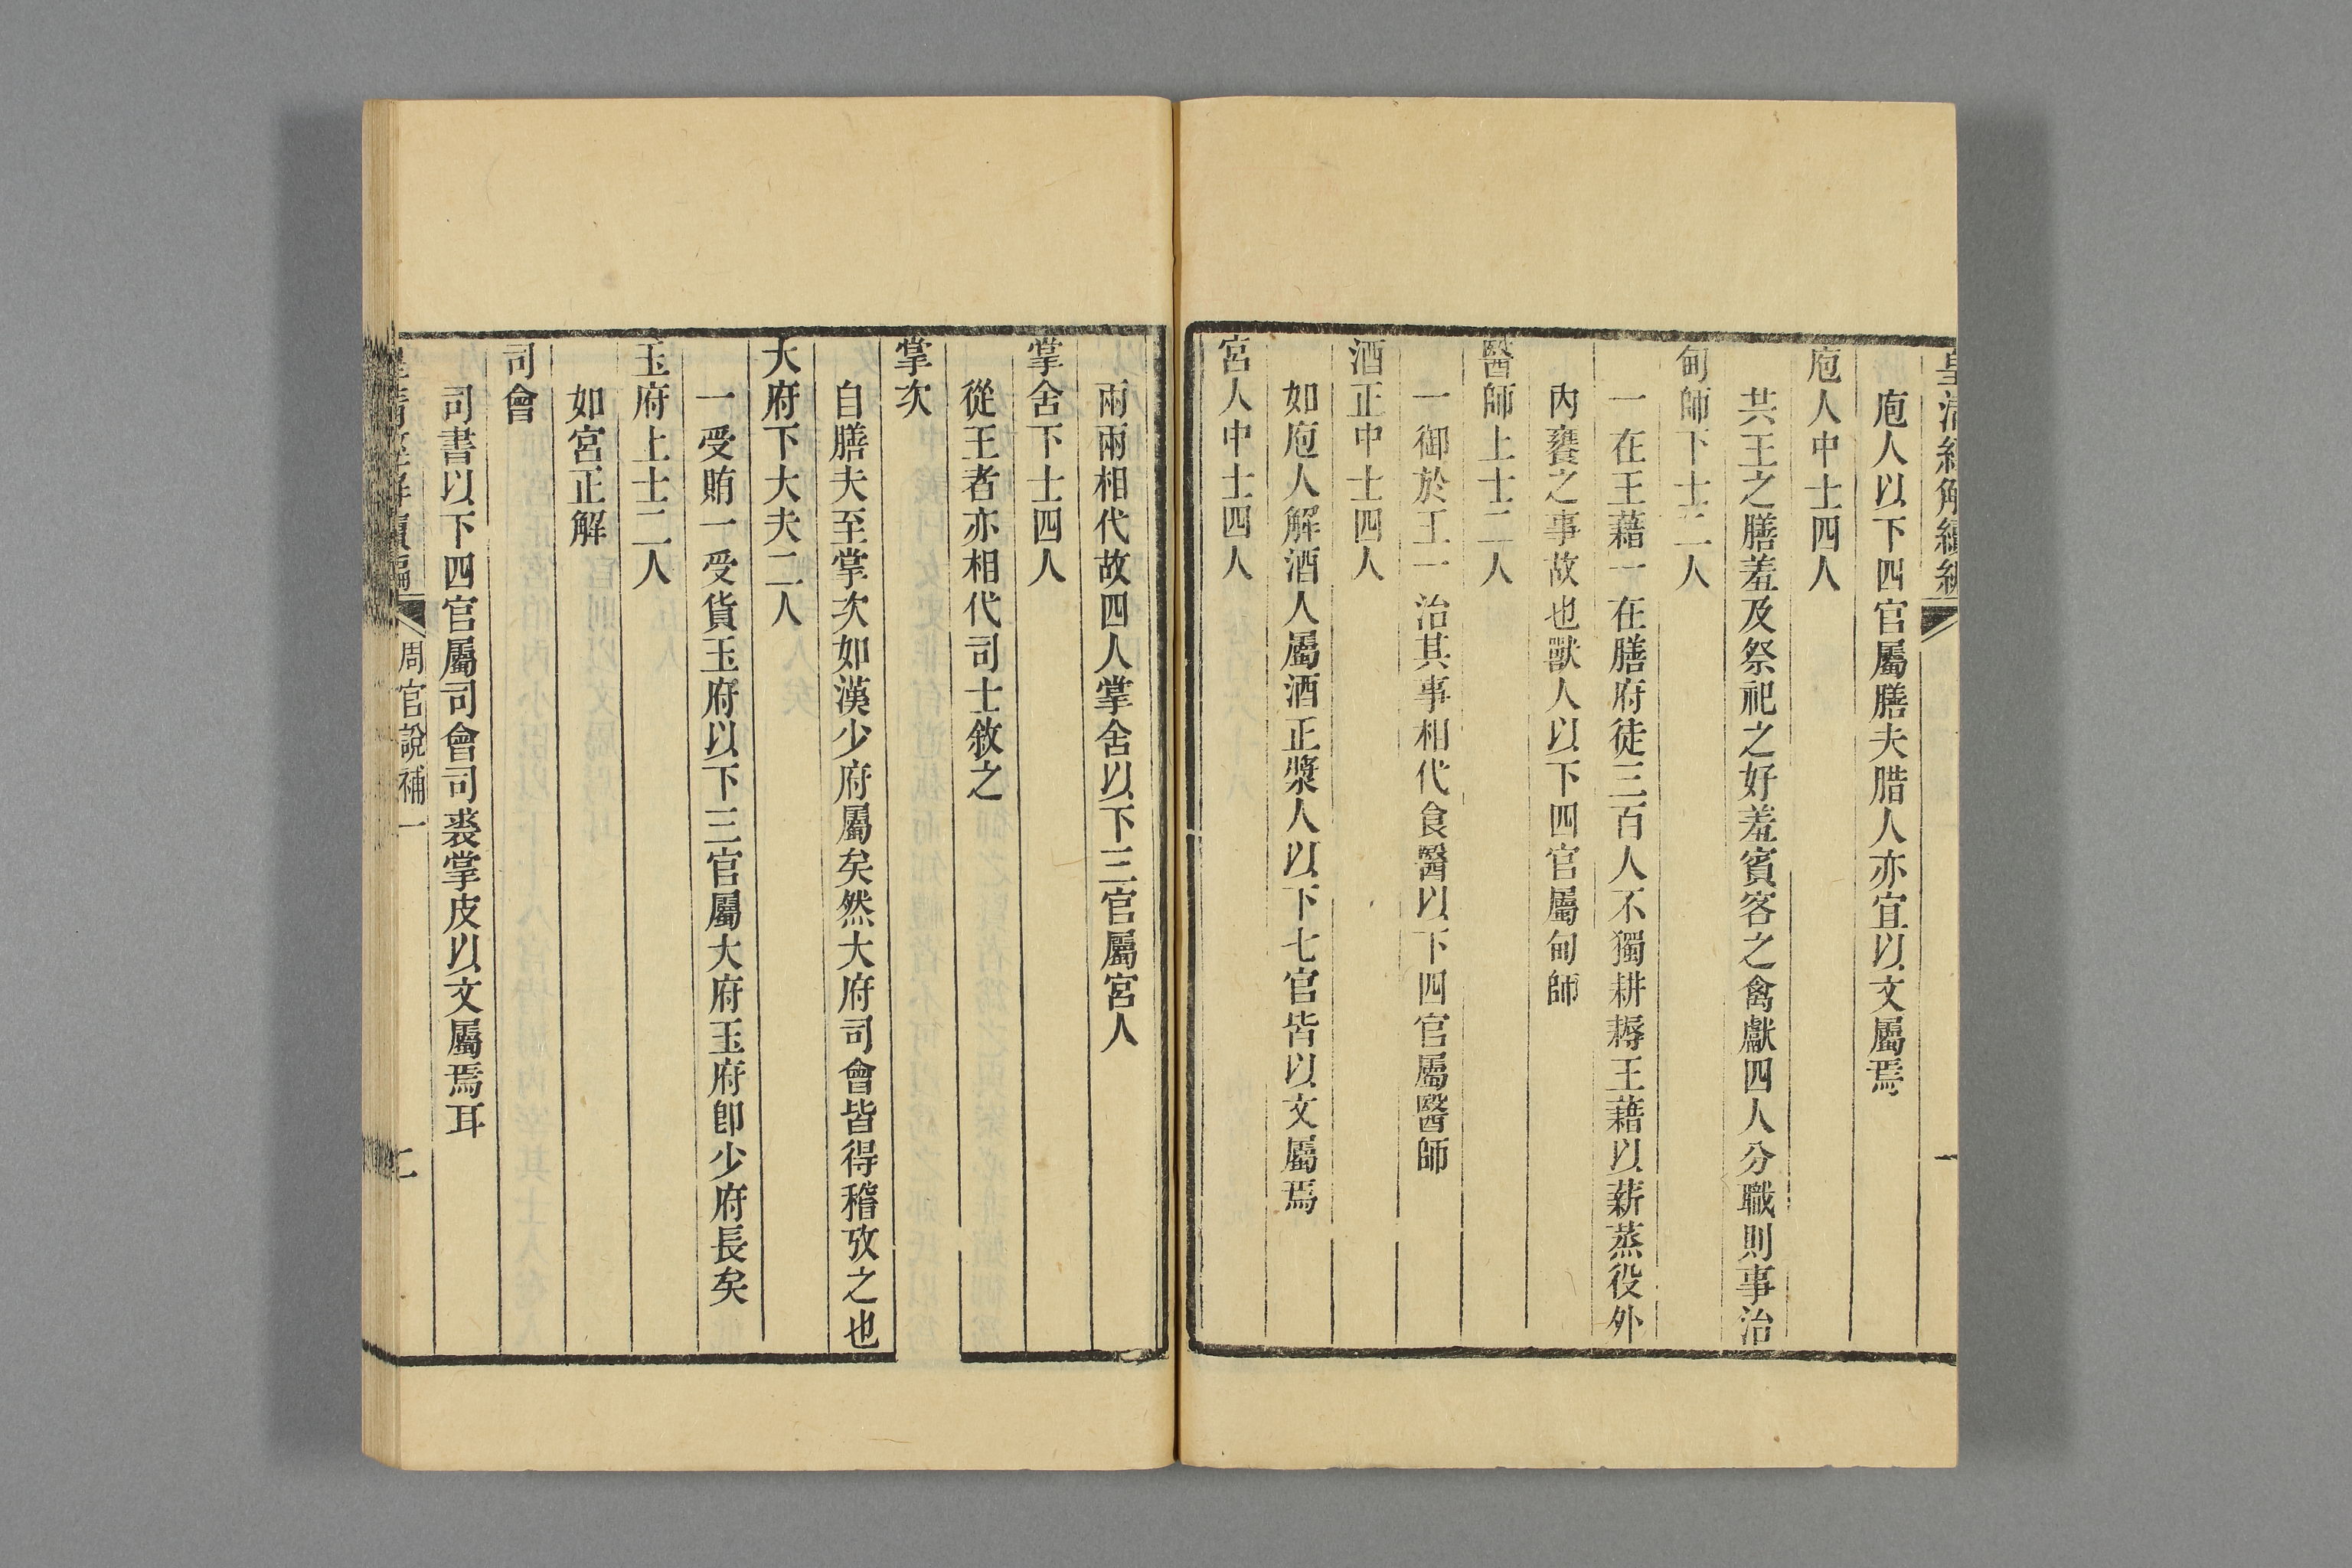 皇清經解續編
一
庖人以下四官屬膳夫腊人亦宜以文屬焉
庖人中士四人
共王之膳羞及祭祀之好羞賓客之禽獻四人分職則事治
甸師下士二人
一在王藉一在膳府徒三百人不獨耕耨王藉以薪蒸役外
內饔之事故也獸人以下四官屬甸師
醫師上士二人
一御於王一治其事相代食醫以下四官屬醫師
酒正中士四人
如庖人解酒人屬酒正漿人以下七官皆以文屬焉
宮人中士四人
兩兩相代故四人掌舍以下三官屬宮人
掌舍下士四人
從王者亦相代司士敘之
掌次
自膳夫至掌次如漢少府屬矣然大府司會皆得稽攷之也
大府下大夫二人
一受賄一受貨玉府以下三官屬大府玉府卽少府長矣
玉府上士二人
如宮正解
司會
司書以下四官屬司會司裘掌皮以文屬焉耳
皇清經解續編
周官說補一
二